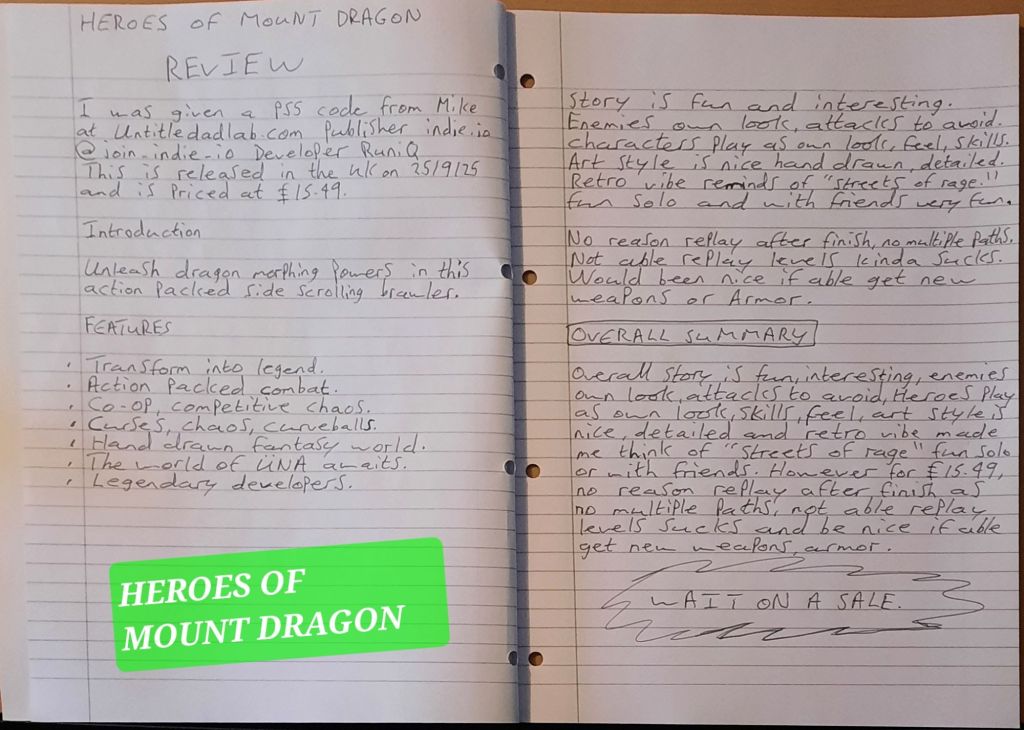 HEROES OF MOUNT DRAGON
REVIEW
I was given a PS5 code from Mike
at Untitleddadlab.com Publisher indie.io
@join_indie_io Developer RuniQ
This is released in the UK on 25/9/25
and is Priced at £15.49.
Introduction
Unleash dragon morphing powers in this
action packed side scrolling brawler.
FEATURES
· Transform into legend.
· Action Packed combat.
· Co-OP, competitive chaos.
· Curses, chaos, curveballs.
· Hand drawn fantasy world.
· The world of UNA awaits.
· Legendary developers.
HEROES OF
MOUNT DRAGON
Story is fun and interesting.
Enemies own look, attacks to avoid.
Characters Play as own look, feel, skills.
Art Style is nice hand drawn, detailed.
Retro vibe reminds of "streets of rage."
fun solo and with friends very fun.
No reason replay after finish, no multiple Paths.
Not able replay levels kinda sucks.
Would been nice if able get new
weapons or Armor.
OVERALL SUMMARY
Overall Story is fun, interesting, enemies
own look, attacks to avoid, Heroes Play
as own look, skills, feel, art style is
nice, detailed and retro vibe made
me think of "Streets of rage" fun solo
or with friends. However for £15.49,
no reason replay after finish as
no multiple Paths, not able replay
levels sucks and be nice if able
get new weapons, armor.
WAIT ON A SALE.